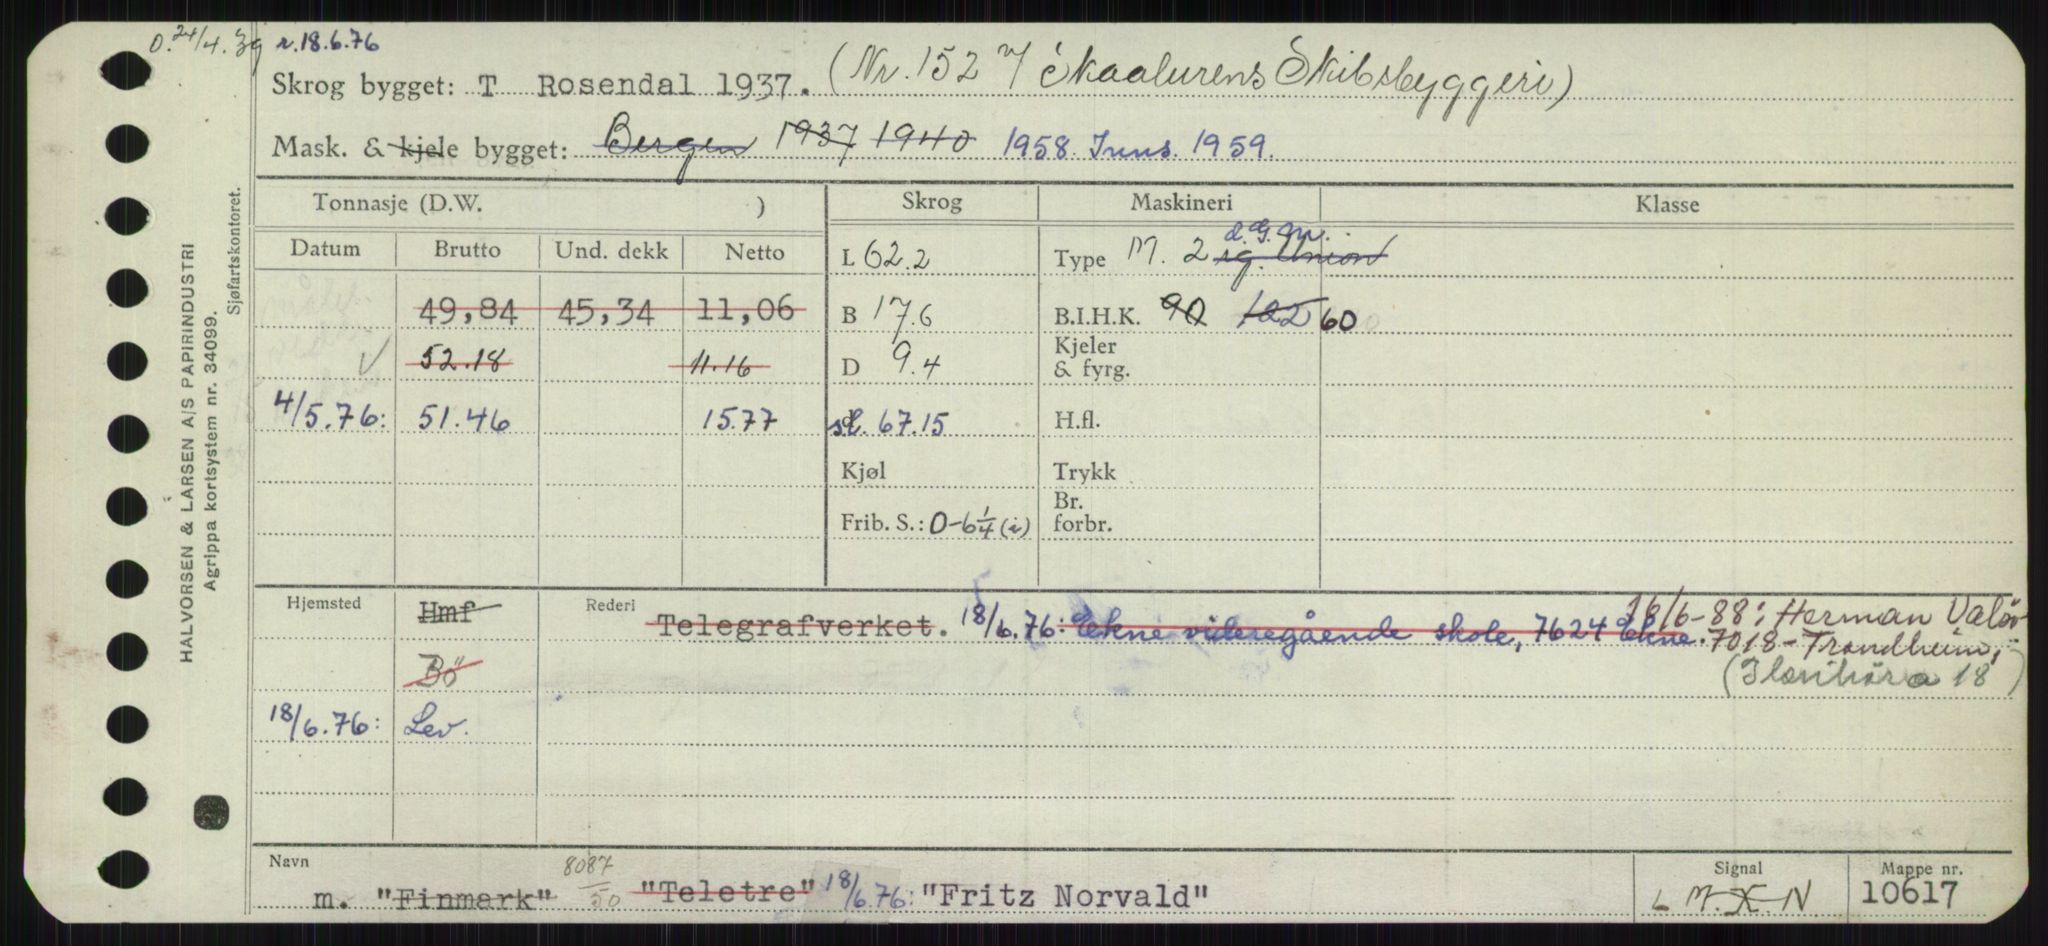 O. 24/4. 39 r. 18.6.76
Skrog bygget: T Rosendal 1937. (Nr. 152 v/ Skaalurens Skibsbyggeri)
Mask. & kjele bygget: Bergen 1937 1940 1958. Inns. 1959.
Tonnasje (D.W. ) Skrog Maskineri Klasse
Datum Brutto Und. dekk Netto L 62.2 Type M. 2 sg. Union d.G.M.
49,84 45,34 11,06 B 17.6 B.I.H.K. 90 122 60
✓ 52.18 11.16 D 9.4 Kjeler & fyrg.
4/5.76: 51.46 15.77 st. 67.15 H.fl.
Kjøl Trykk
Frib. S.: 0-6 1/4 (i) Br. forbr.
Hjemsted Hmf Rederi Telegrafverket. 18/6.76: Ekne videregående skole, 7624 Ekne. 16/6-88: Herman Valör
Bö 7018-Trondheim,
18/6.76: Lev. 18)
Navn 8087/50 Signal Mappe nr.
m. "Finmark" "Teletre" 18/6.76: "Fritz Norvald" L M. X. N. 10617
HALVORSEN & LARSEN A/S PAPIRINDUSTRI
Agrippa kortsystem nr. 34099.
Sjøfartskontoret.